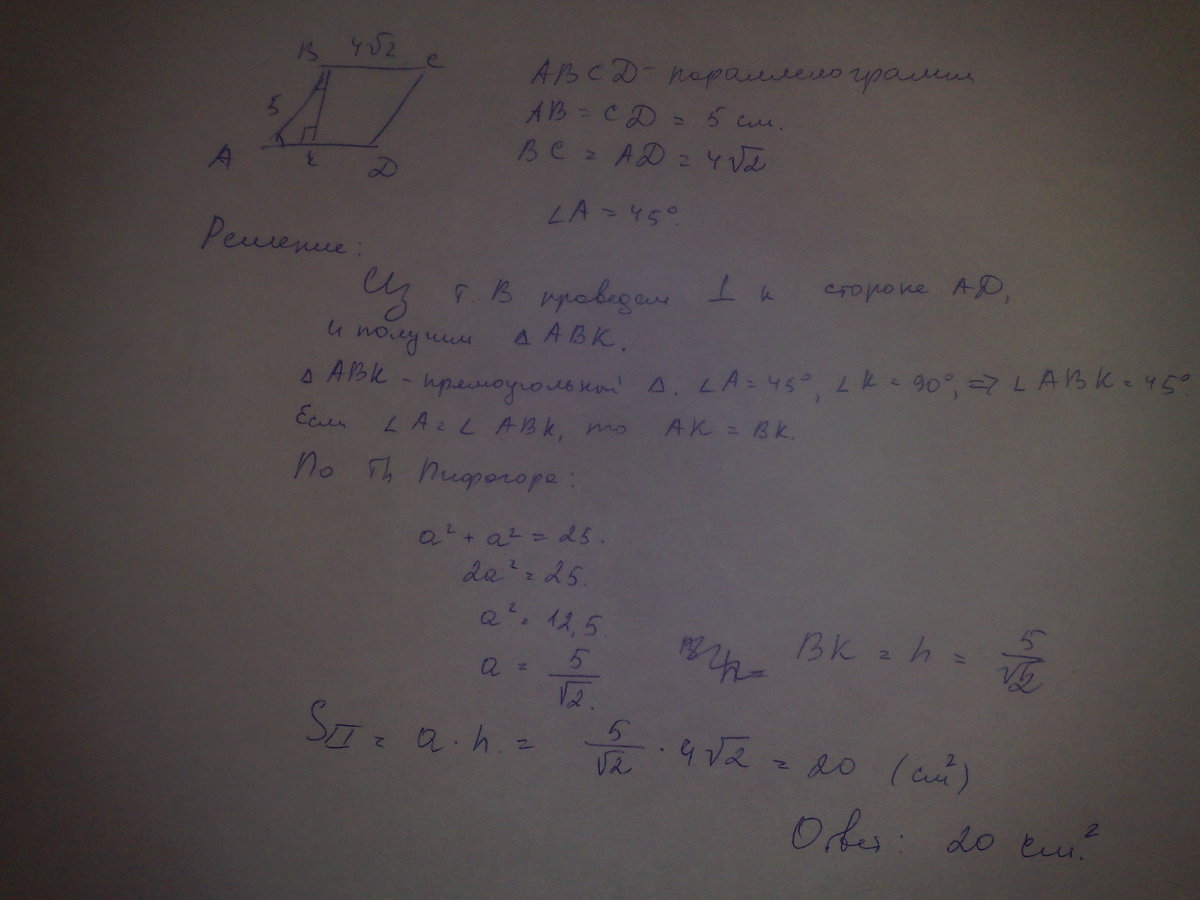 B 4√2 C
5
A K D
ABCD - параллелограмм
AB = CD = 5 см.
BC = AD = 4√2
∠A = 45°.
Решение:
Из т. B проведем ⊥ к стороне AD,
и получим △ ABK.
△ ABK - прямоугольный △. ∠A = 45°, ∠K = 90°, => ∠ABK = 45°
Если ∠A = ∠ ABK, то AK = BK.
По Th Пифагора:
a² + a² = 25.
2a² = 25.
a² = 12,5.
a = 5/√2.
BK = h = 5/√2
S = a · h = 5/√2 · 4√2 = 20 (см²)
Ответ: 20 см².